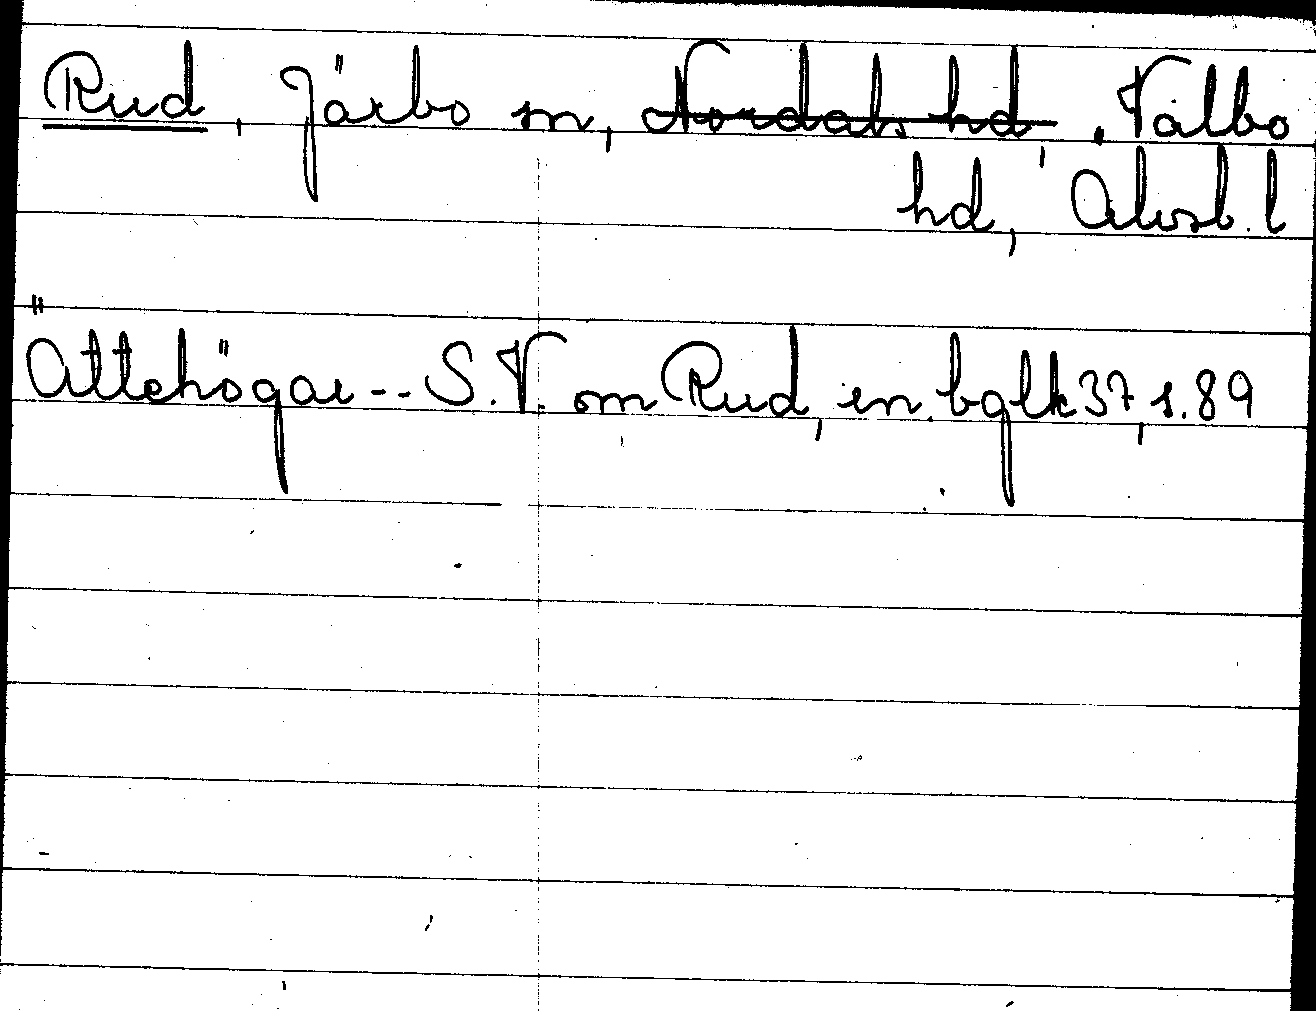 Rud, Järbo sn, Nordals hd, Valbo
hd, Älvsb. l
Ättehögar -- S.V. om Rud, en. bglk 37, s. 89